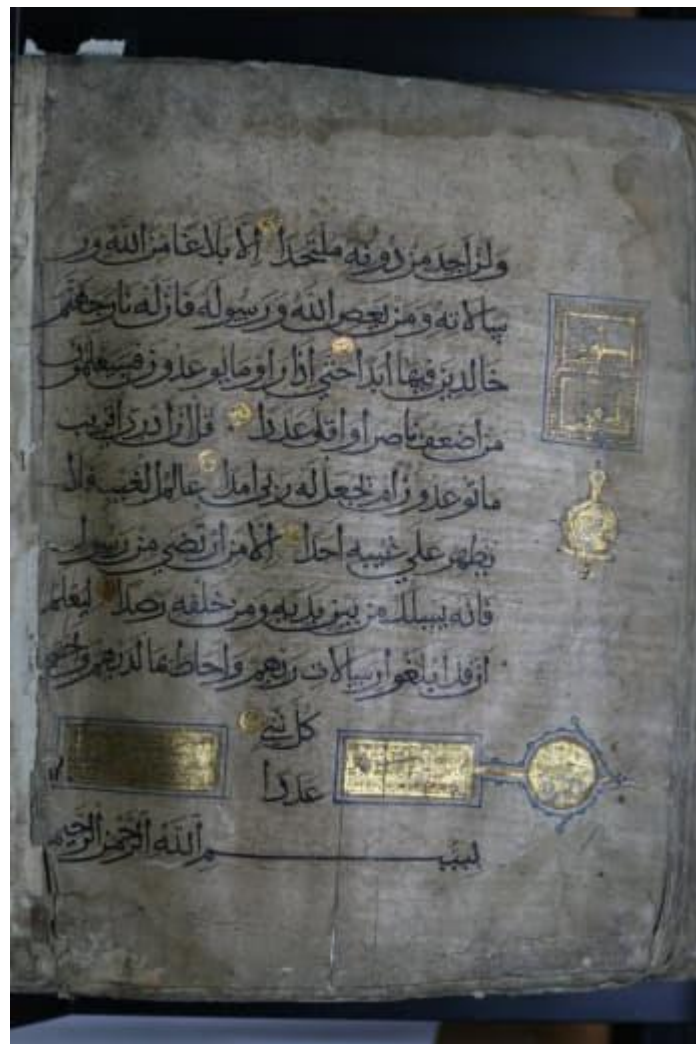 ولن اجد من دونه ملتحدا الا بلاغا من الله ور
سالاته ومن يعص الله ورسوله فان له نار جهنم
خالدين فيها ابدا حتي اذا راوا ما يوعدون فسيعلمون
من اضعف ناصرا واقل عددا قل ان ادري اقريب
ما توعدون ام يجعل له ربي امدا عالم الغيب فلا
يظهر علي غيبه احدا الا من ارتضي من رسول
فانه يسلك من بين يديه ومن خلفه رصدا ليعلم
ان قد ابلغوا رسالات ربهم واحاط بما لديهم واحصي
كل شي
عددا
بسم الله الرحمن الرحيم